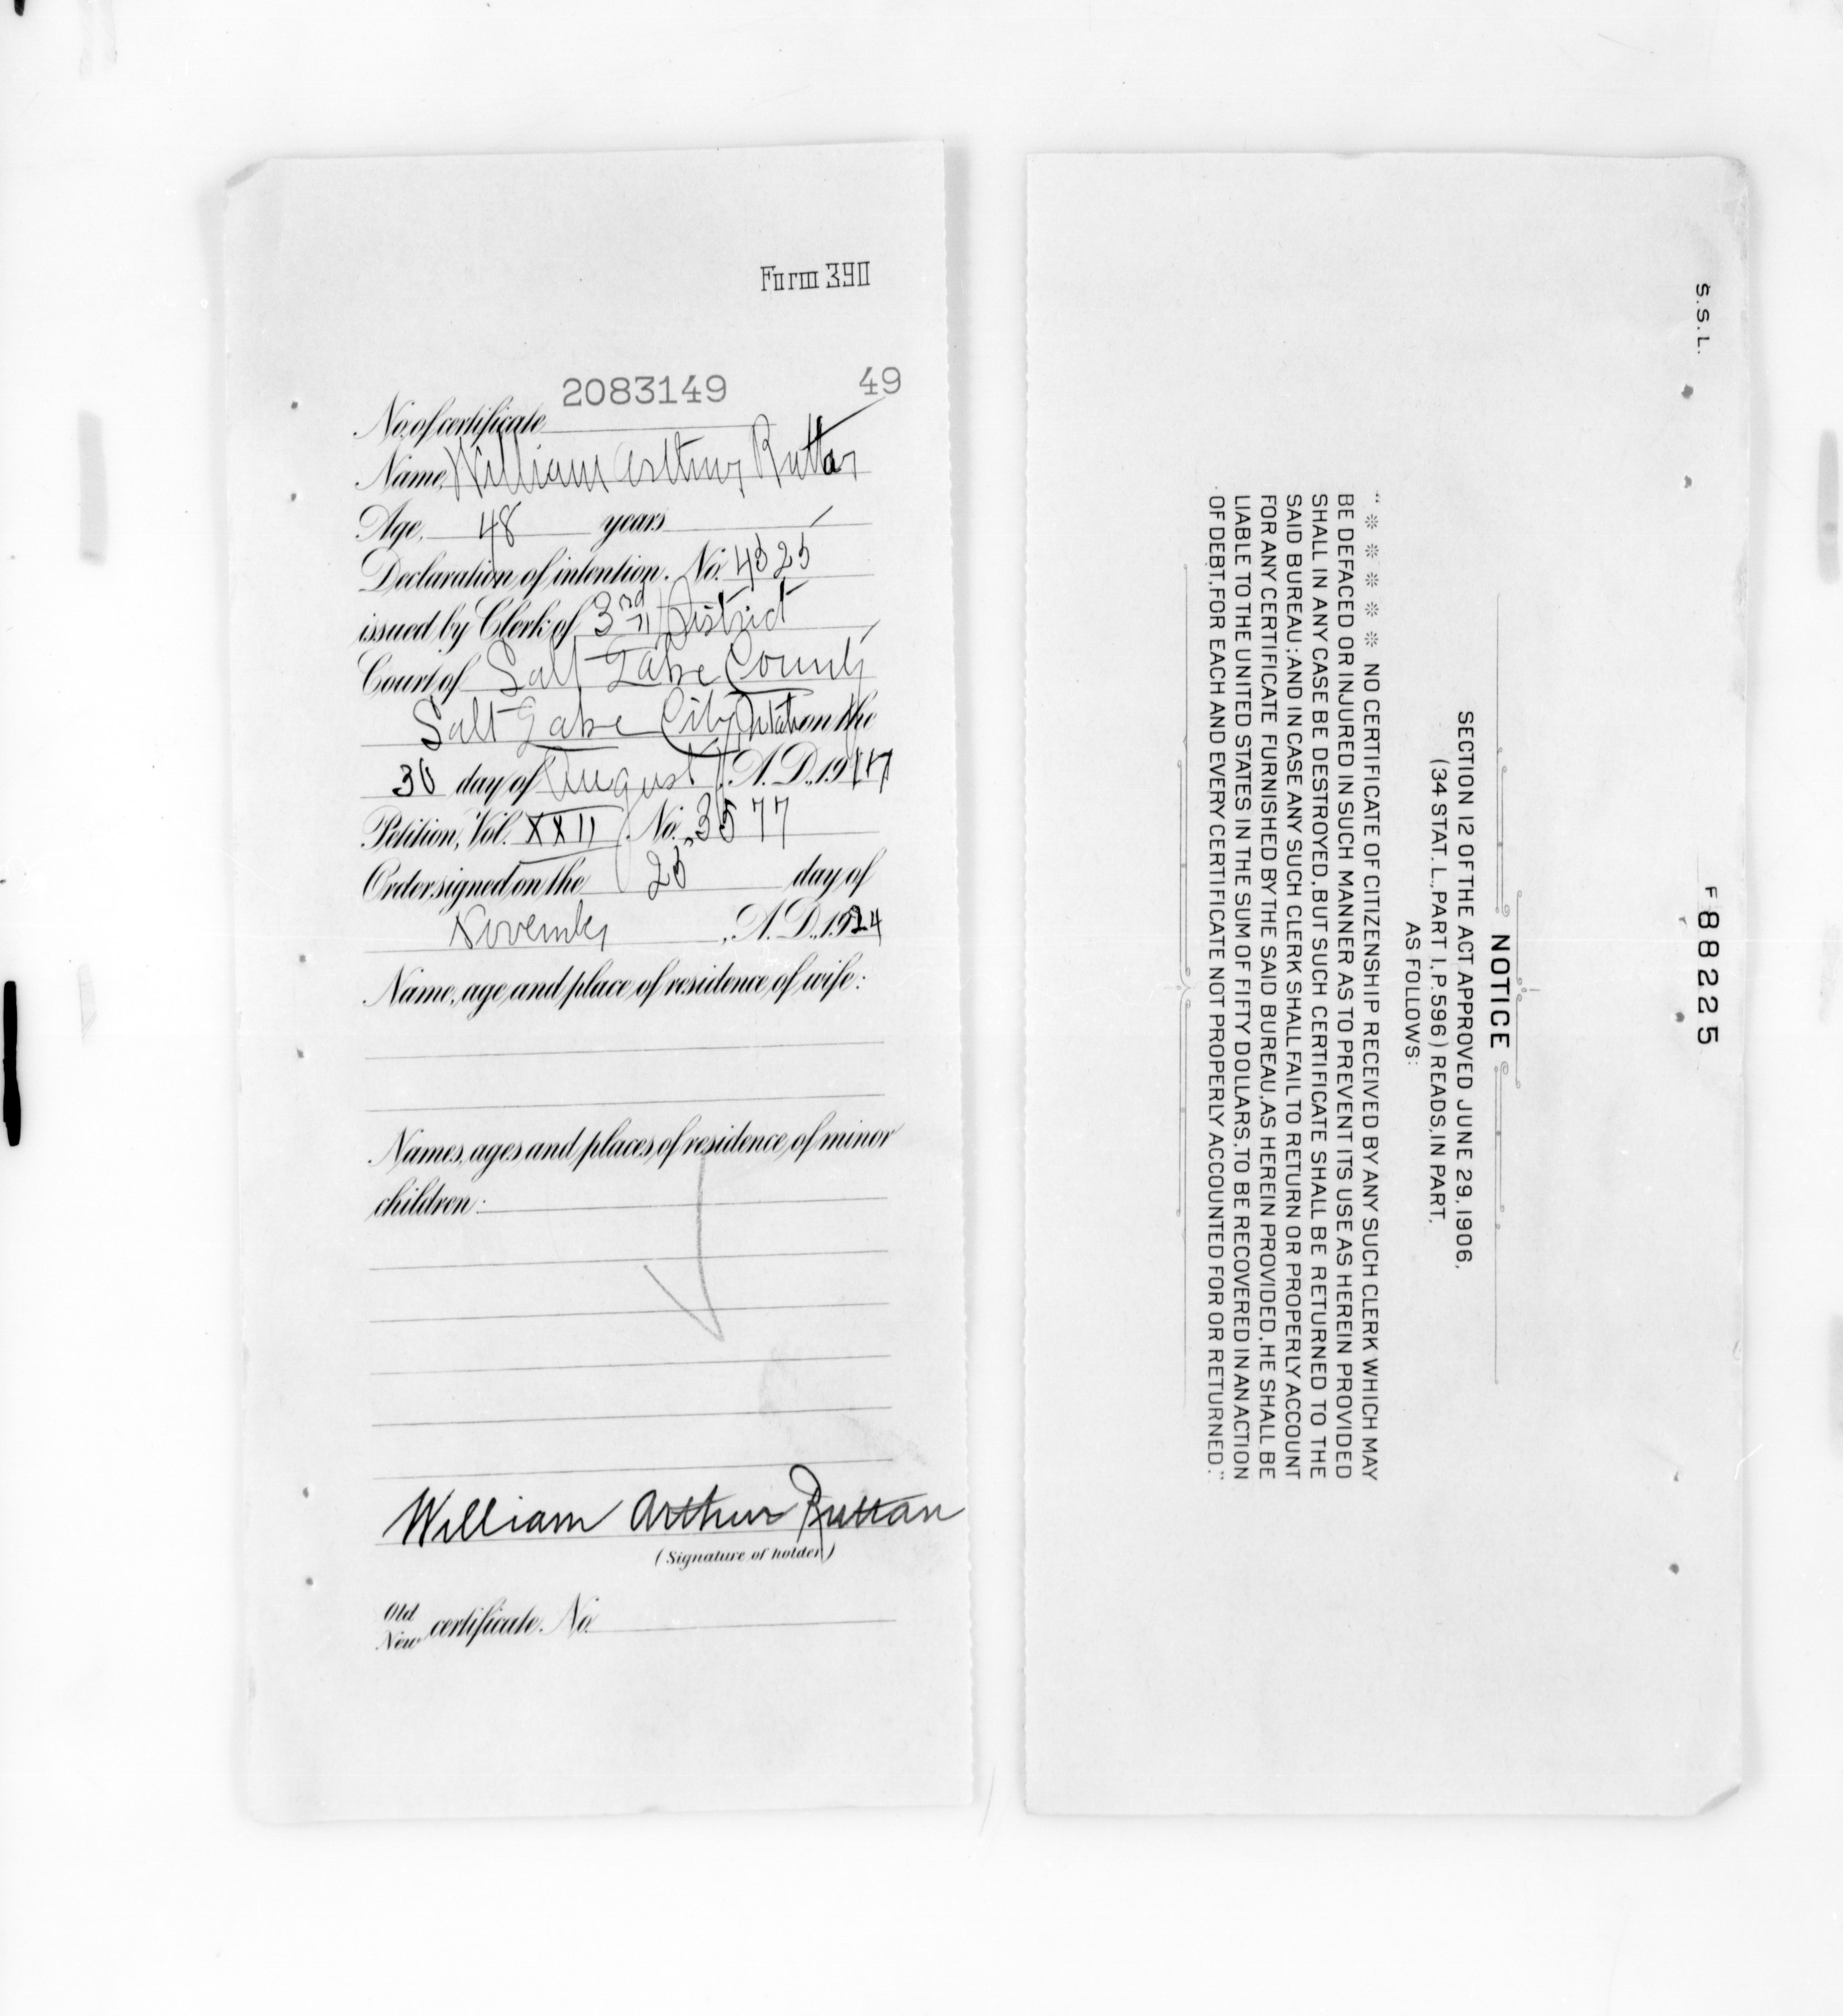 Form 390
2083149 49
No. of certificate
Name, William Arthur Ruttan
Age, 48 years
Declaration of intention, No. 4525
issued by Clerk of 3rd District
Court of Salt Lake County
Salt Lake City, Utah on the
30 day of August, A.D., 1917
Petition, Vol. XXII, No. 3577
Order signed on the 25 day of
November, A.D., 1924
Name, age and place of residence of wife:
Names, ages and places of residence of minor
children:
William Arthur Ruttan
(Signature of holder)
Old
New certificate No.
S.S.L.
F 88225
NOTICE
SECTION 12 OF THE ACT APPROVED JUNE 29, 1906,
(34 STAT. L., PART I, P. 596) READS, IN PART,
AS FOLLOWS:
"※ ※ ※ ※ ※ NO CERTIFICATE OF CITIZENSHIP RECEIVED BY ANY SUCH CLERK WHICH MAY
BE DEFACED OR INJURED IN SUCH MANNER AS TO PREVENT ITS USE AS HEREIN PROVIDED
SHALL IN ANY CASE BE DESTROYED, BUT SUCH CERTIFICATE SHALL BE RETURNED TO THE
SAID BUREAU; AND IN CASE ANY SUCH CLERK SHALL FAIL TO RETURN OR PROPERLY ACCOUNT
FOR ANY CERTIFICATE FURNISHED BY THE SAID BUREAU, AS HEREIN PROVIDED, HE SHALL BE
LIABLE TO THE UNITED STATES IN THE SUM OF FIFTY DOLLARS, TO BE RECOVERED IN AN ACTION
OF DEBT, FOR EACH AND EVERY CERTIFICATE NOT PROPERLY ACCOUNTED FOR OR RETURNED."